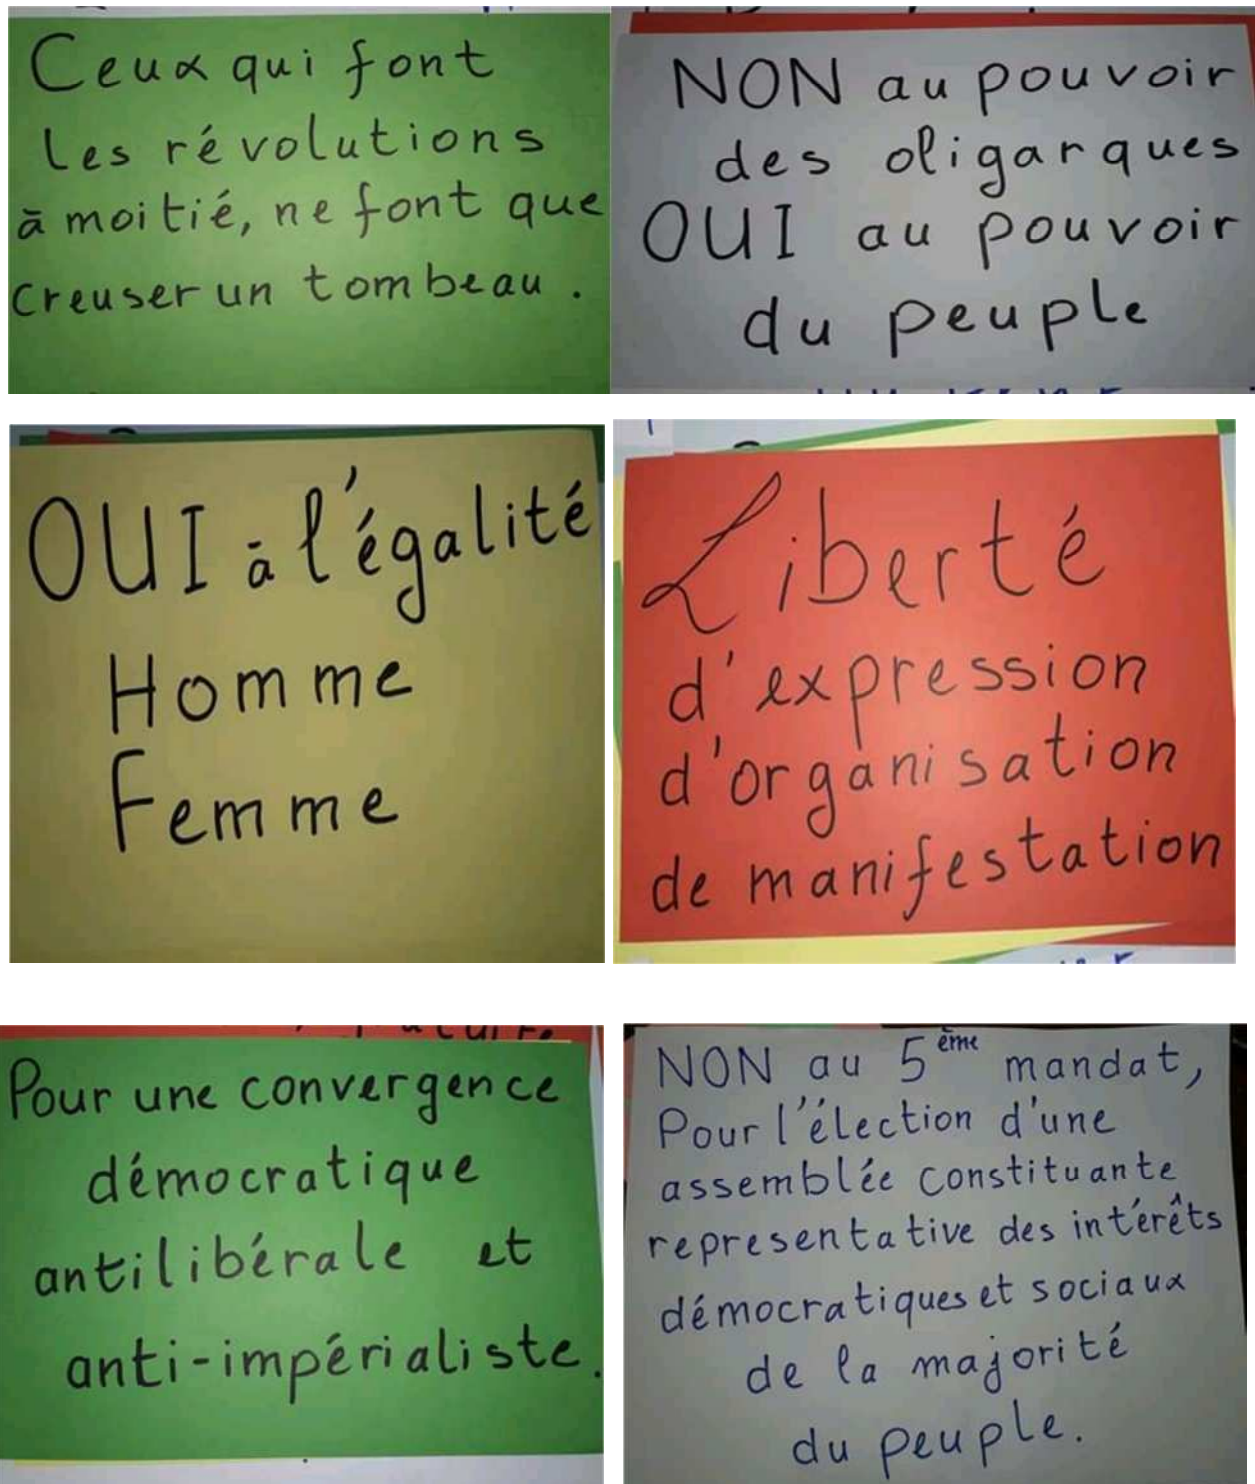 Ceux qui font
les révolutions
à moitié, ne font que
creuser un tombeau.
NON au pouvoir
des oligarques
OUI au pouvoir
du peuple
OUI à l'égalité
Homme
Femme
Liberté
d'expression
d'organisation
de manifestation
Pour une convergence
démocratique
antilibérale et
anti-impérialiste.
NON au 5ème mandat,
Pour l'élection d'une
assemblée constituante
representative des intérêts
démocratiques et sociaux
de la majorité
du peuple.